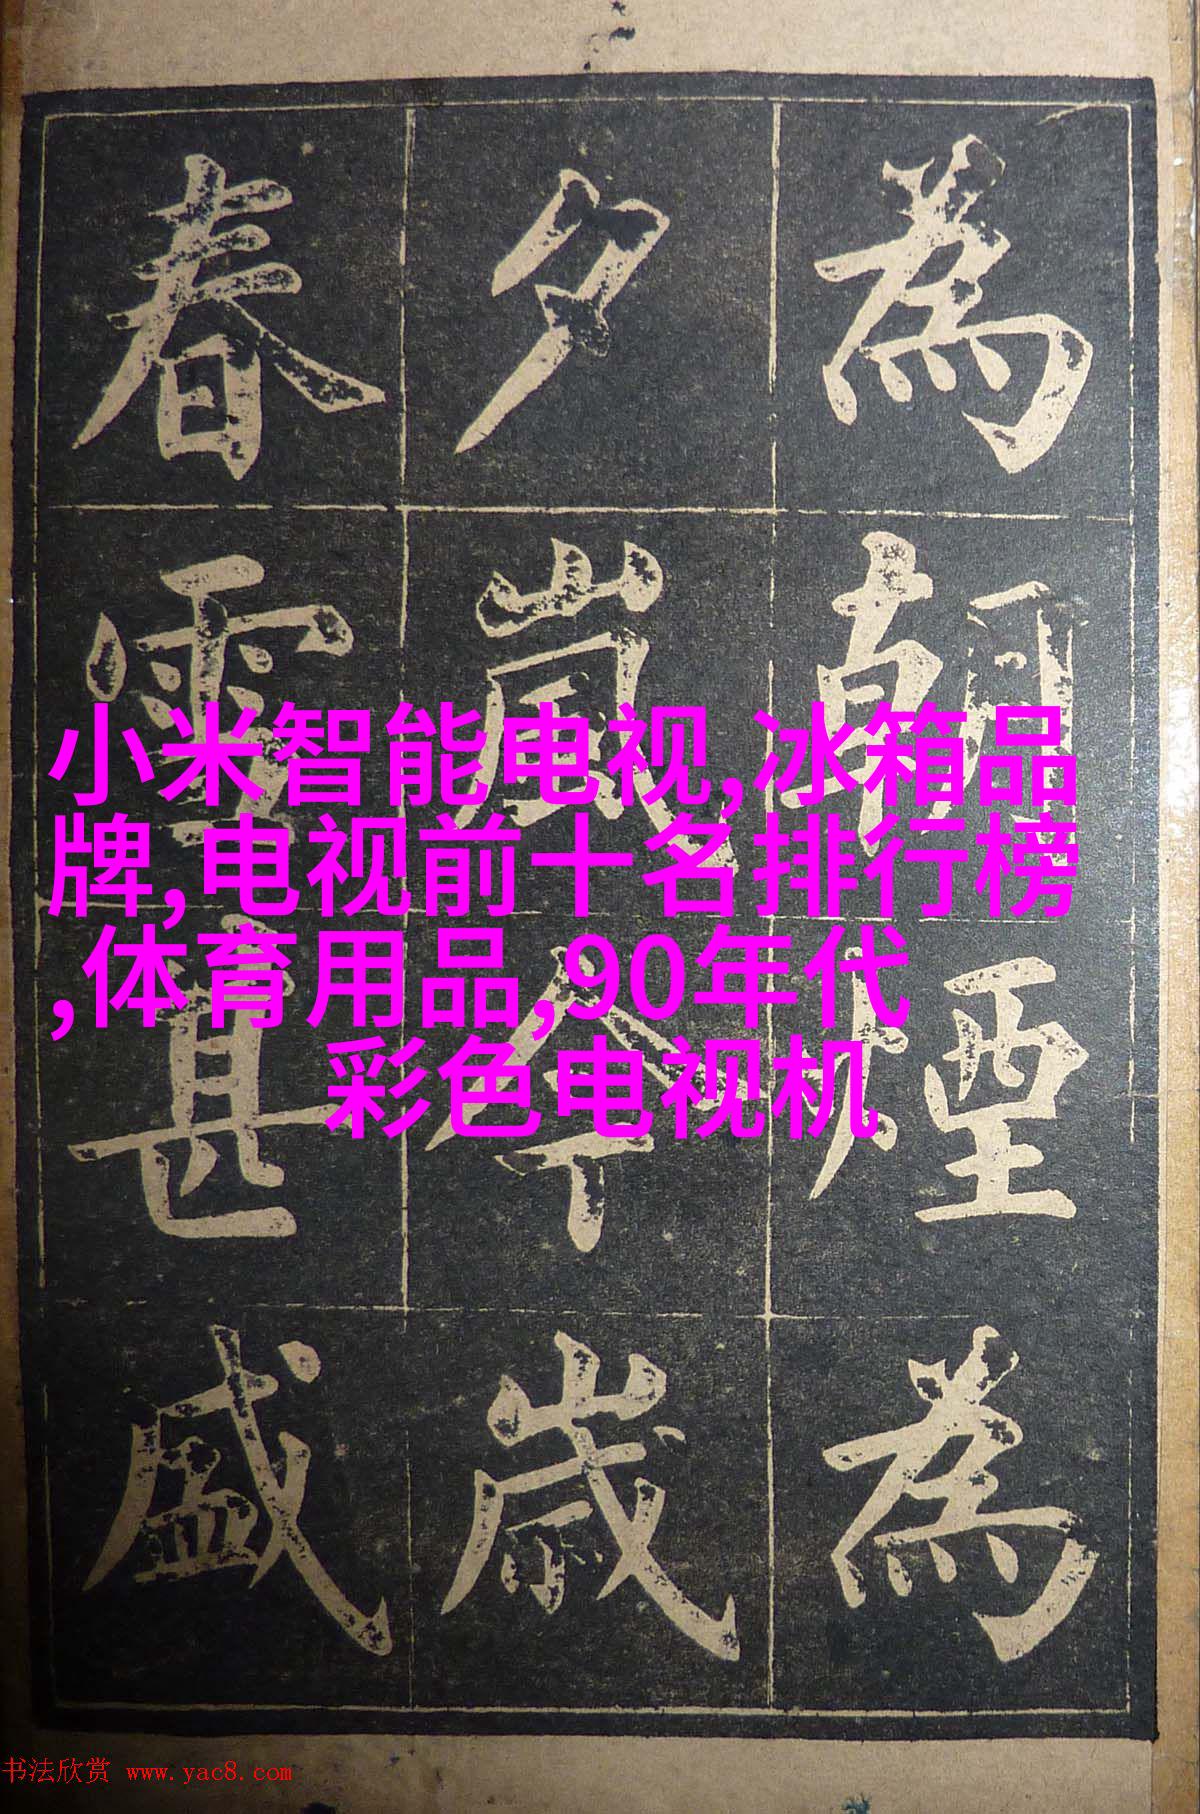 為朝煙為
夕嵐今歳
春雪甚盛
小米智能电视,冰箱品
牌,电视前十名排行榜
,体育用品,90年代
彩色电视机
书法欣赏 www.yac8.com